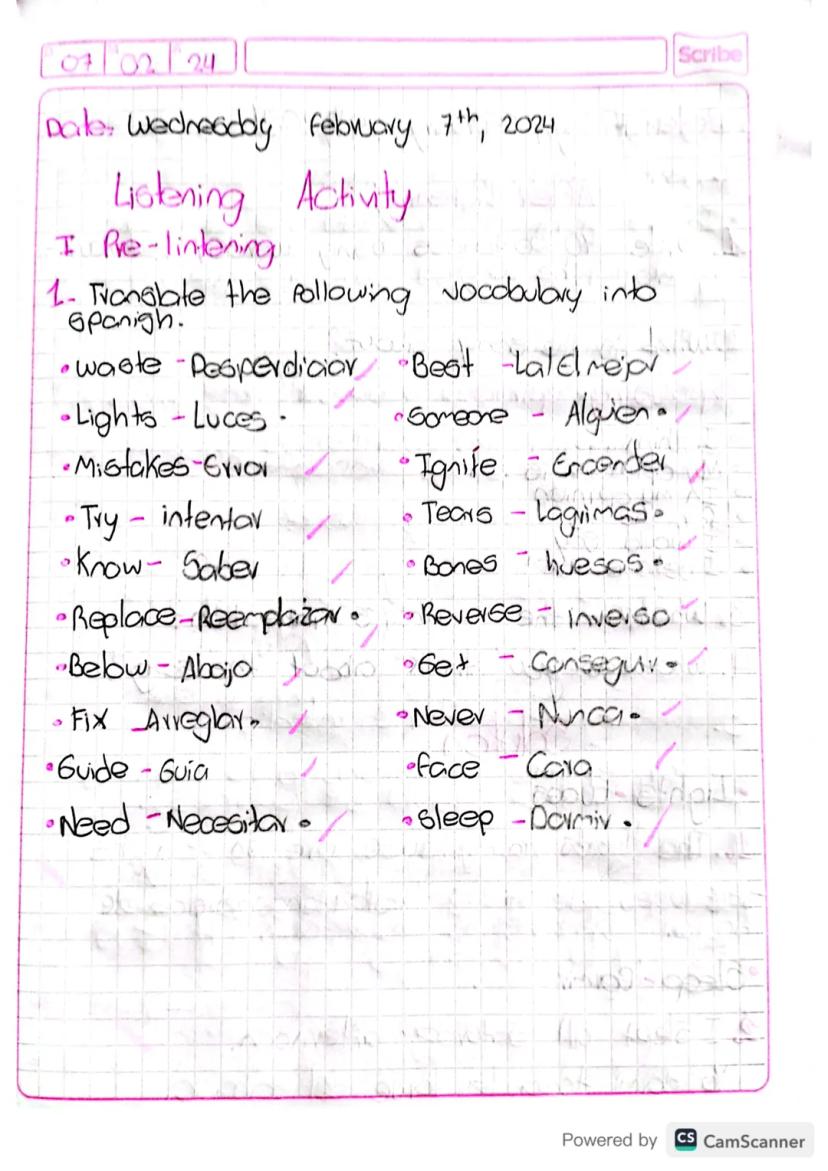 07 02 24
Scribe
Date: Wednesday february 7th, 2024
Listening Activity
I Pre-lintening
1- Translate the following vocabulary into
Spanish.
• Waste - Desperdiciar
• Lights - Luces.
• Mistakes - Error
• Try - intentar
• Know - Saber
• Replace - Reemplazar.
• Below - Abajo
• Fix - Arreglar.
• Guide - Guia
• Need - Necesitar.
• Best - La/El mejor
• Someone - Alguien.
• Ignite - Encender
• Tears - Lagrimas.
• Bones - huesos.
• Reverse - inverso
• Get - Conseguir.
• Never - Nunca.
• face - Cara
• Sleep - Dormir.
Powered by CS CamScanner